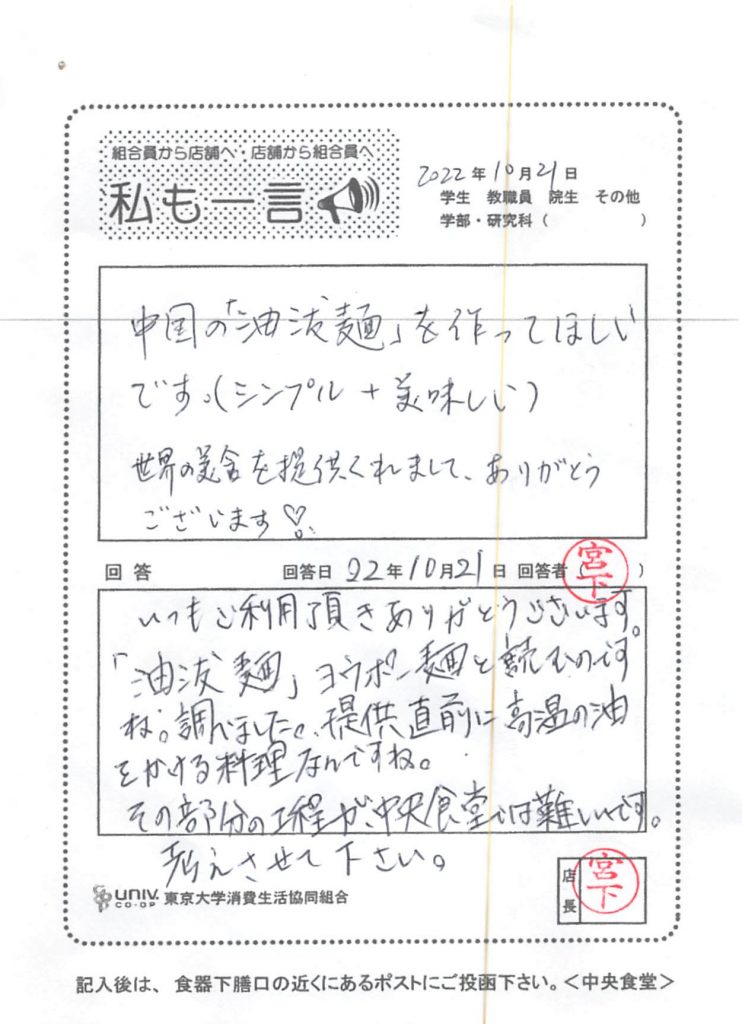 組合員から店舗へ・店舗から組合員へ
私も一言
2022年10月21日
学生 教職員 院生 その他
学部・研究科（ ）
中国の「油泼麺」を作ってほしい
です。(シンプル + 美味しい)
世界の美食を提供くれまして、ありがとう
ございます♡。
回答 回答日 22年10月21日 回答者（宮下）
いつもご利用頂きありがとうございます。
「油泼麺」ヨウポー麺と読むのです
ね。調べました。提供直前に高温の油
をかける料理なんですね。
その部分の工程が、中央食堂では難しいです。
考えさせて下さい。
UNIV. CO-OP 東京大学消費生活協同組合
店長 宮下
記入後は、食器下膳口の近くにあるポストにご投函下さい。＜中央食堂＞